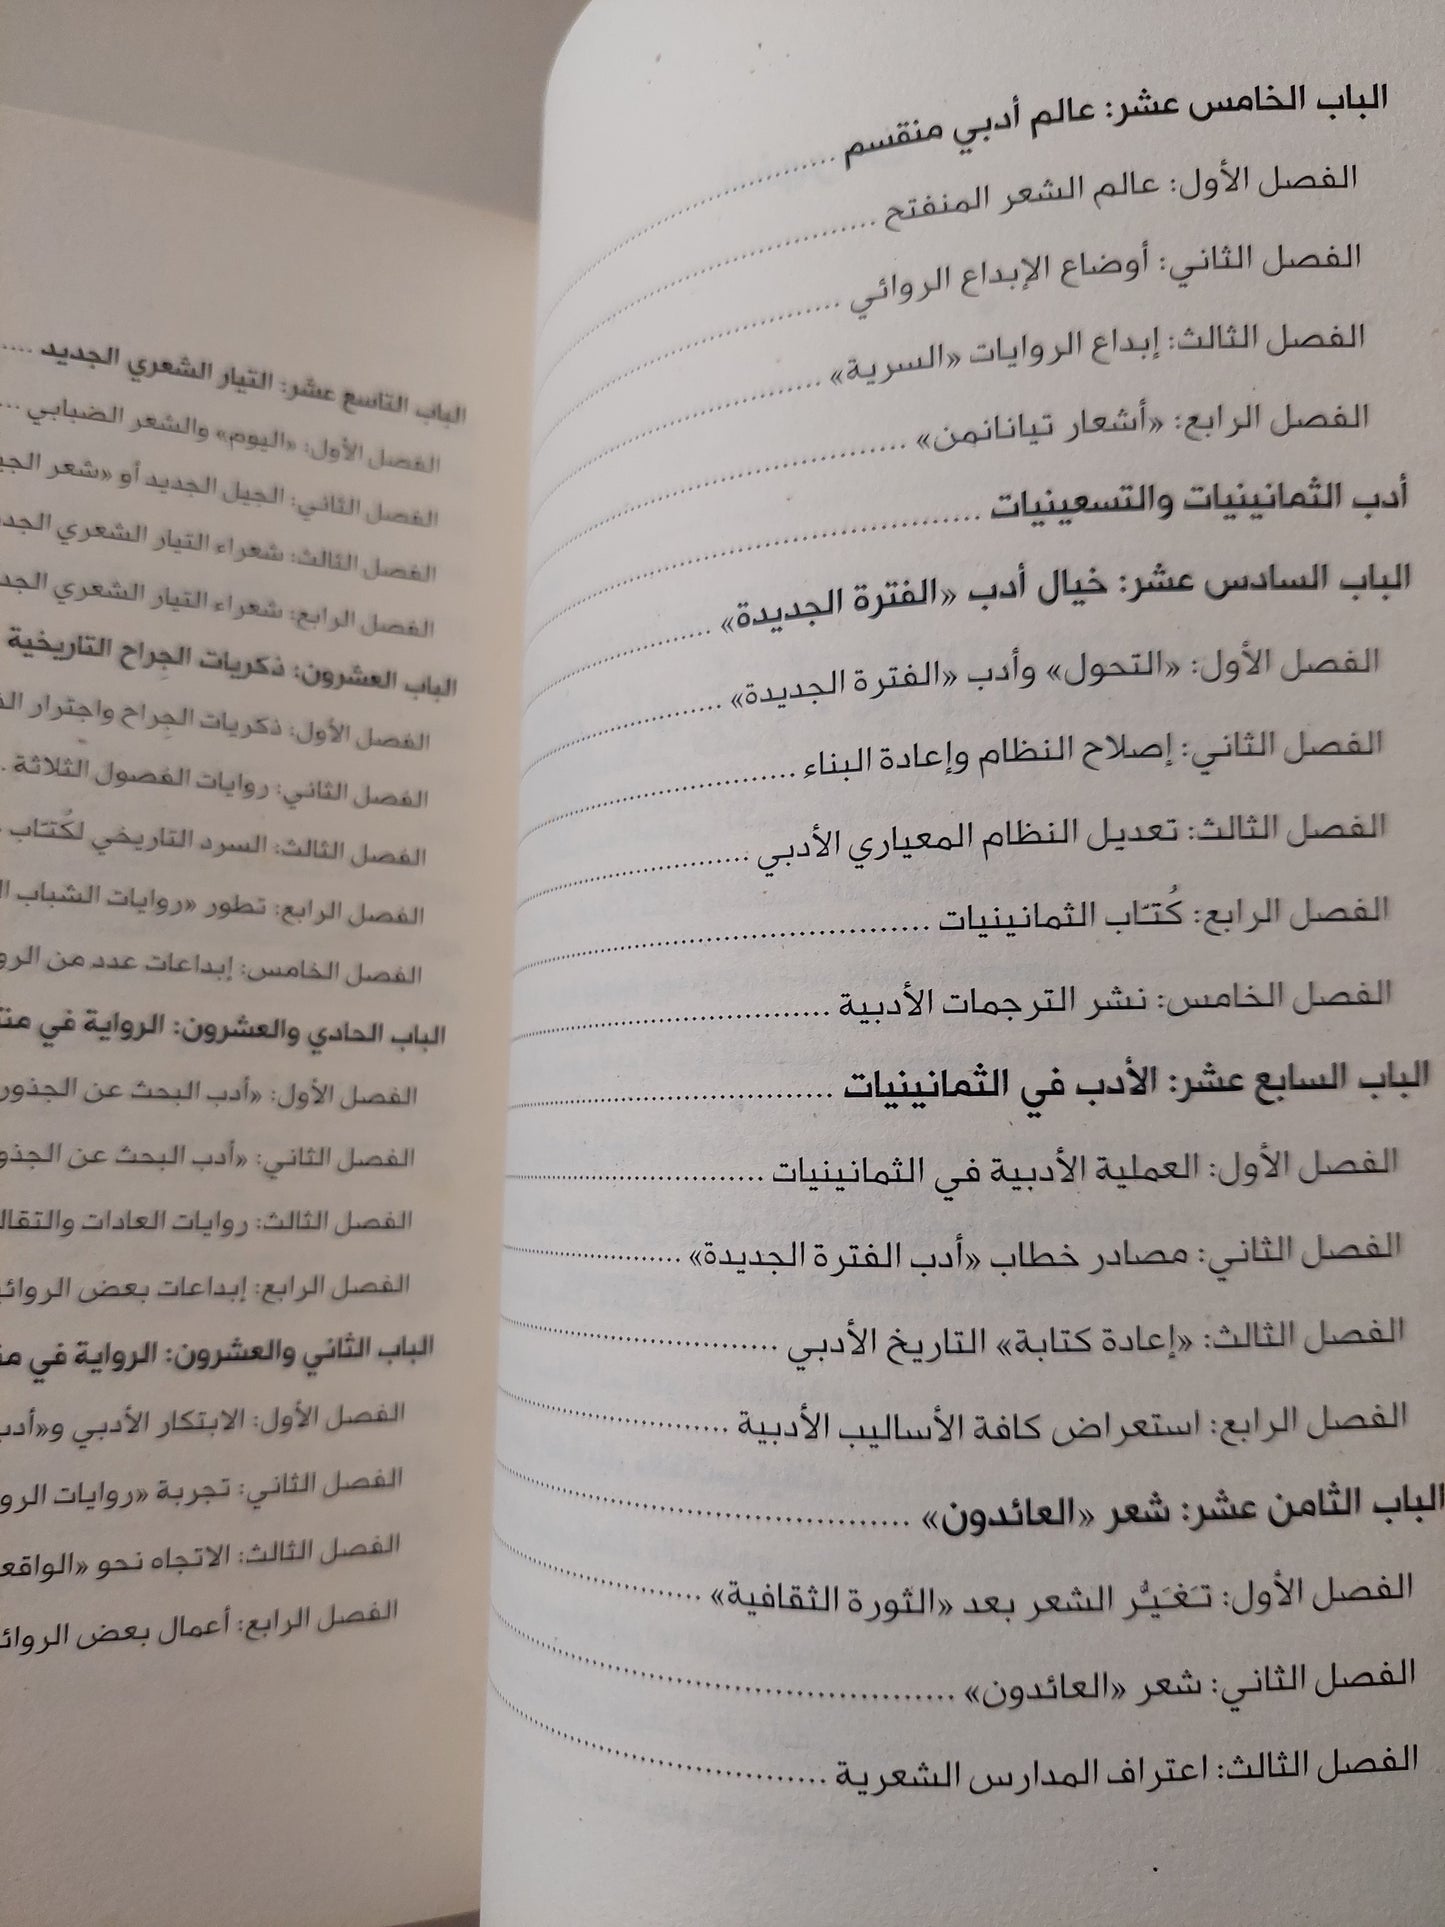 الباب الخامس عشر: عالم أدبي منقسم
الفصل الأول: عالم الشعر المنفتح
الفصل الثاني: أوضاع الإبداع الروائي
الفصل الثالث: إبداع الروايات «السرية»
الفصل الرابع: «أشعار تيانانمن»
أدب الثمانينيات والتسعينيات
الباب السادس عشر: خيال أدب «الفترة الجديدة»
الفصل الأول: «التحول» وأدب «الفترة الجديدة»
الفصل الثاني: إصلاح النظام وإعادة البناء
الفصل الثالث: تعديل النظام المعياري الأدبي
الفصل الرابع: كُتـّاب الثمانينيات
الفصل الخامس: نشر الترجمات الأدبية
الباب السابع عشر: الأدب في الثمانينيات
الفصل الأول: العملية الأدبية في الثمانينيات
الفصل الثاني: مصادر خطاب «أدب الفترة الجديدة»
الفصل الثالث: «إعادة كتابة» التاريخ الأدبي
الفصل الرابع: استعراض كافة الأساليب الأدبية
الباب الثامن عشر: شعر «العائدون»
الفصل الأول: تـَغـَيـُّر الشعر بعد «الثورة الثقافية»
الفصل الثاني: شعر «العائدون»
الفصل الثالث: اعتراف المدارس الشعرية
الباب التاسع عشر: التيار الشعري الجديد
الفصل الأول: «اليوم» والشعر الضبابي
الفصل الثاني: الجيل الجديد أو «شعر
الفصل الثالث: شعراء التيار الشعري
الفصل الرابع: شعراء التيار الشعري
الباب العشرون: ذكريات الجراح التاريخية
الفصل الأول: ذكريات الجراح واجترار
الفصل الثاني: روايات الفصول الثلاثة
الفصل الثالث: السرد التاريخي لكُتـّاب
الفصل الرابع: تطور «روايات الشباب
الفصل الخامس: إبداعات عدد من
الباب الحادي والعشرون: الرواية في
الفصل الأول: «أدب البحث عن الجذور
الفصل الثاني: «أدب البحث عن
الفصل الثالث: روايات العادات
الفصل الرابع: إبداعات بعض
الباب الثاني والعشرون: الرواية في
الفصل الأول: الابتكار الأدبي
الفصل الثاني: تجربة «روايات
الفصل الثالث: الاتجاه نحو
الفصل الرابع: أعمال بعض